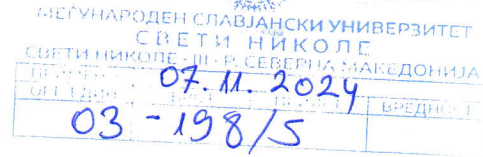 МЕЃУНАРОДЕН СЛАВЈАНСКИ УНИВЕРЗИТЕТ
СВЕТИ НИКОЛЕ
СВЕТИ НИКОЛЕ - Р. СЕВЕРНА МАКЕДОНИЈА
07. 11. 2024
ВРЕДНОСТ
03 - 198/5